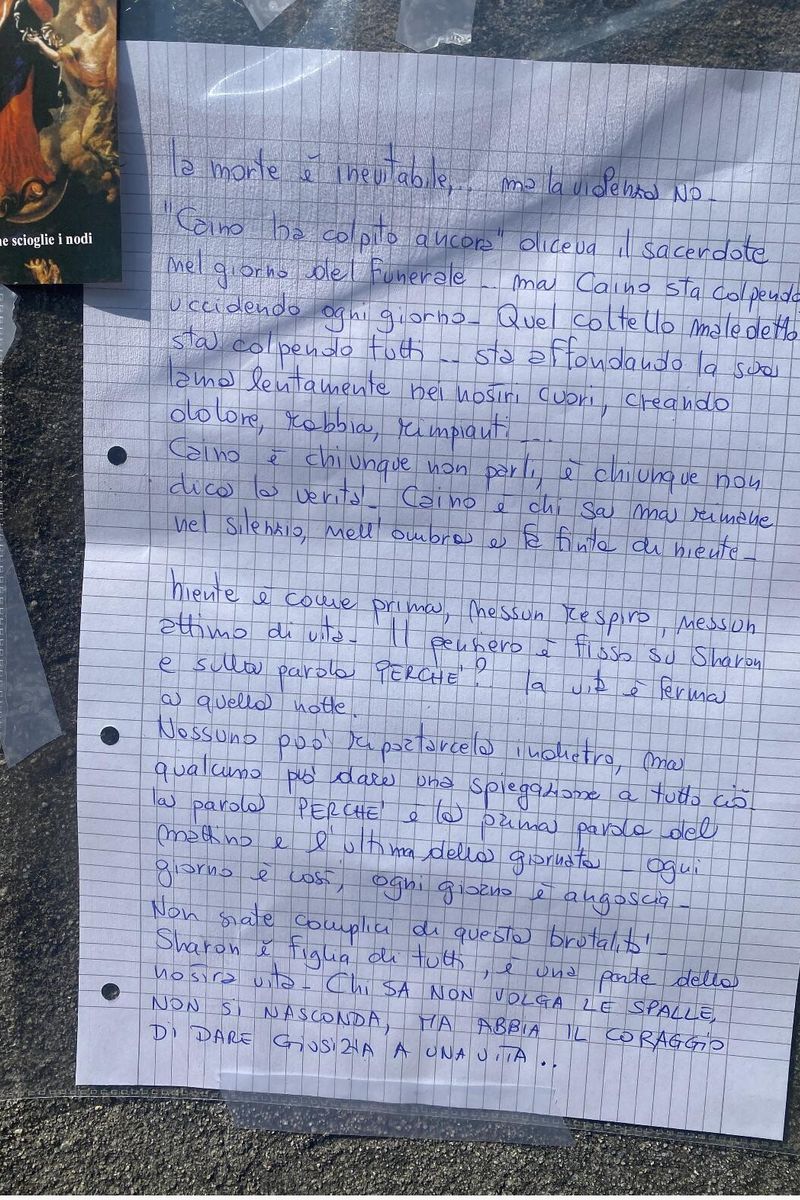 he scioglie i nodi
la morte è inevitabile,.. ma la violenza NO-
"Caino ha colpito ancora" diceva il sacerdote
nel giorno del Funerale.. ma Caino sta colpendo
uccidendo ogni giorno- Quel coltello maledetto
sta colpendo tutti... sta affondando la sua
lama lentamente nei nostri cuori, creando
dolore, rabbia, rimpianti...
Caino è chiunque non parli, è chiunque non
dica la verità- Caino è chi sa ma rimane
nel silenzio, nell'ombra e fa finta di niente-
Niente è come prima, nessun respiro, nessun
attimo di vita- Il pensiero è fisso su Sharon
e sulla parola PERCHE'? la vita è ferma
a quella notte.
Nessuno può riportarcela indietro, ma
qualcuno può dare una spiegazione a tutto ciò
la parola PERCHE' è la prima parola del
mattino e l'ultima della giornata- ogni
giorno è così, ogni giorno è angoscia-
Non siate complici di questa brutalità-
Sharon è figlia di tutti, è una parte della
nostra vita- Chi SA NON VOLGA LE SPALLE,
NON SI NASCONDA, MA ABBIA IL CORAGGIO
DI DARE GIUSIZIA A UNA VITA..